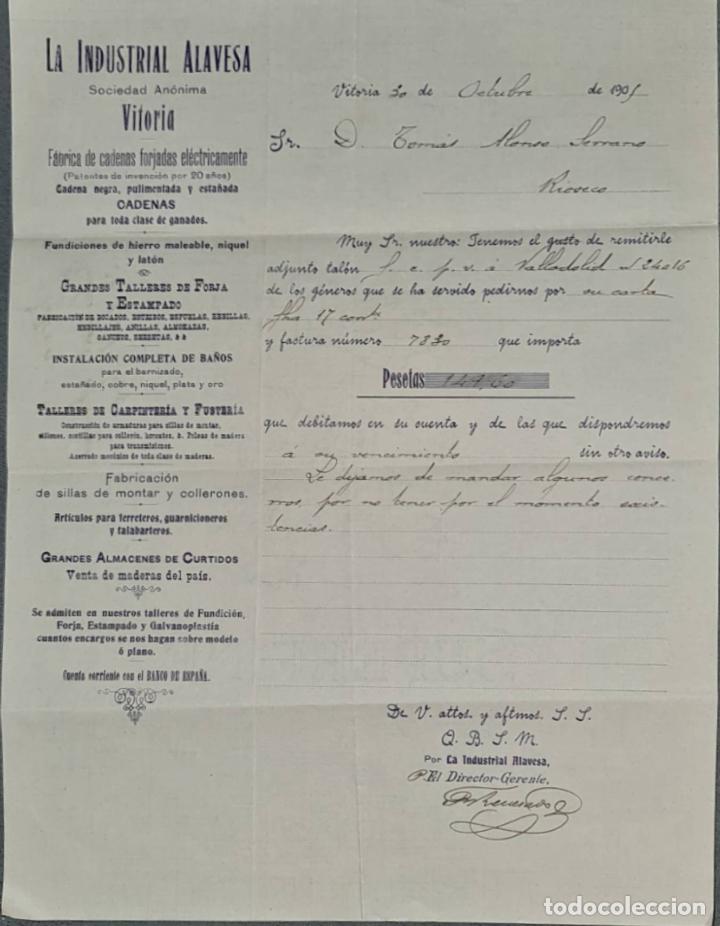 LA INDUSTRIAL ALAVESA
Sociedad Anónima
Vitoria
Fábrica de cadenas forjadas eléctricamente
(Patentes de invención por 20 años)
Cadena negra, pulimentada y estañada
CADENAS
para toda clase de ganados.
Fundiciones de hierro maleable, niquel
y latón
GRANDES TALLERES DE FORJA
Y ESTAMPADO
FABRICACIÓN DE BOCADOS, ESTRIBOS, ESPUELAS, HEBILLAS,
HEBILLAJES, ANILLAS, ALMOHAZAS,
GANCHOS, SERRETAS, & &
INSTALACIÓN COMPLETA DE BAÑOS
para el barnizado,
estañado, cobre, niquel, plata y oro
TALLERES DE CARPINTERÍA Y FUSTERÍA
Construcción de armaduras para sillas de montar,
sillones, costillas para collerín, horcates, &. Poleas de madera
para transmisiones.
Aserrado mecánico de toda clase de maderas.
Fabricación
de sillas de montar y collerones.
Artículos para ferreteros, guarnicioneros
y talabarteros.
GRANDES ALMACENES DE CURTIDOS
Venta de maderas del país.
Se admiten en nuestros talleres de Fundición,
Forja, Estampado y Galvanoplastia
cuantos encargos se nos hagan sobre modelo
ó plano.
Cuenta corriente con el BANCO DE ESPAÑA.
Vitoria 30 de Octubre de 1905
Sr. D. Tomás Alonso Serrano
Rioseco
Muy Sr. nuestro: Tenemos el gusto de remitirle
adjunto talón f. c. p. v. á Valladolid nº 24016
de los géneros que se ha servido pedirnos por su carta
fha 17 corrte
y factura número 7830 que importa
Pesetas 149,60
que debitamos en su cuenta y de las que dispondremos
á su vencimiento sin otro aviso.
Le dejamos de mandar algunos
por no tener por el momento exis-
tencias.
De V. attos. y aftmos. S. S.
Q. B. S. M.
Por La Industrial Alavesa,
P. El Director-Gerente,
todocoleccion
todocoleccion.net